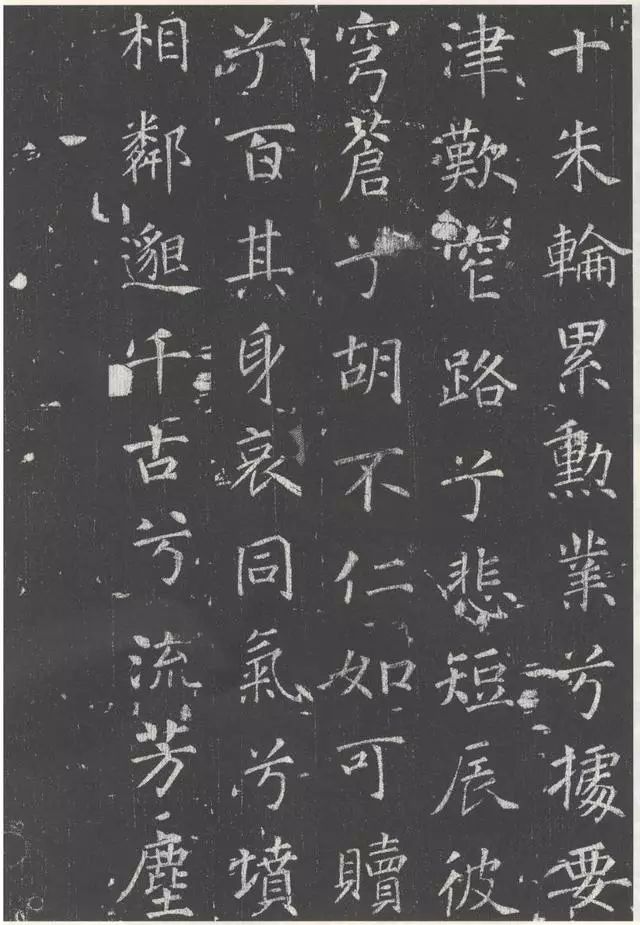 十朱輪累勲業兮據要
津歎窄路兮悲短辰彼
穹蒼兮胡不仁如可贖
兮百其身哀同氣兮墳
相鄰邈千古兮流芳塵